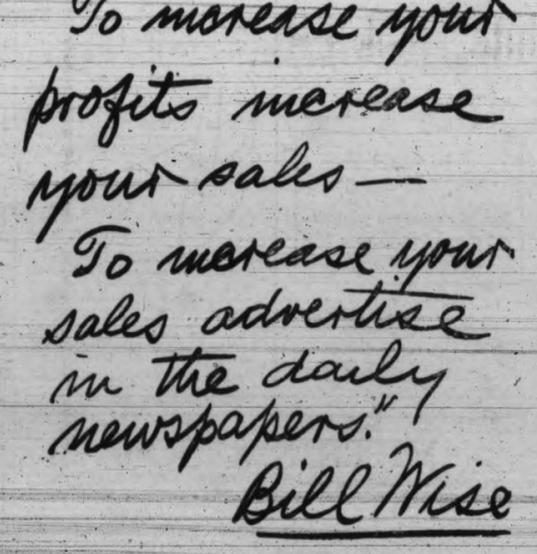 To increase your
profits increase
your sales—
To increase your
sales advertise
in the daily
newspapers."
Bill Wise